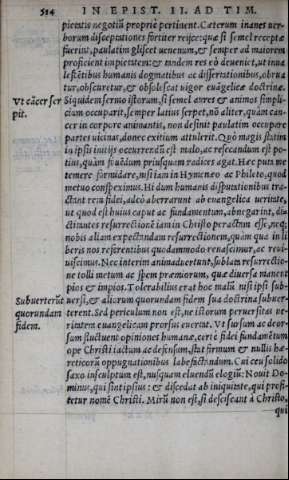 514 IN EPIST. II. AD TIM.
pietatis negotiũ proprie pertinent. Cæterum inanes ver-
borum disceptationes fortiter rejice: quæ si semel receptæ
fuerint, paulatim gliscet uenenum, & semper ad maiorem
proficient impietatem: & tandem res eò deueniet, ut inua
lescẽtibus humanis dogmatibus ac dissertationibus, obrua
tur, obscuretur, & obsolescat uigor euãgelicæ doctrinæ.
Vt cãcer ser
pit.
Siquidem sermo istorum, si semel aures & animos simpli-
cium occuparit, semper latius serpet, nõ aliter, quàm can-
cer in corpore animantis, non desinit paulatim occupare
partes uicinas, donec exitium attulerit. Quò magis statim
in ipsis initijs occurrendũ est malo, ac resecandum est po-
tius, quàm fouẽdum priusquam radices agat. Hæc puta me
temere formidare, nisi iam in Hymenæo ac Phileto, quod
metuo conspeximus. Hi dum humanis disputationibus tra-
ctant rem fidei, adeò aberrarunt ab euangelica ueritate,
ut quod est huius caput ac fundamentum, abnegarint, di-
ctitantes resurrectionẽ iam in Christo peractam esse, neq;
nobis aliam expectandam resurrectionem, quàm qua in li
beris nos referentibus quodammodo renascimur, ac reui-
uiscimus. Nec interim animaduertunt, sublata resurrectio-
ne tolli metum ac spem præmiorum, quæ diuersa manent
pios & impios. Tolerabilius erat hoc malũ nisi ipsi sub-
Subuerterũt
quorundam
fidem.
uersi, & aliorum quorundam fidem sua doctrina subuer-
terent. Sed periculum non est, ne istorum peruersitas ue-
ritatem euangelicam prorsus euertat. Vt sursum ac deor-
sum fluctuent opiniones humanæ, certè fidei fundamẽtum
ope Christi iactum ac defensum, stat firmum & nullis hæ-
reticorũ oppugnationibus labefactandum. Cui ceu solido
saxo insculptum est, nusquam eluendũ elogiũ: Nouit Do-
minus, qui sint ipsius: & discedat ab iniquitate, qui profi-
tetur nomẽ Christi. Mirũ non est, si desciscant à Christo,
qui